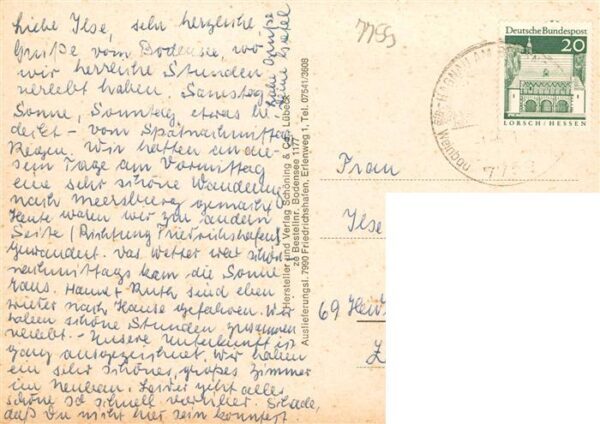 Liebe Ilse, sehr herzliche
Grüße vom Bodensee, wo
wir herrliche Stunden
verlebt haben. Samstag
Sonne, Sonntag, etwas be
deckt - vom Spätnachmittag
Regen. Wir hatten an die-
sem Tage am Vormittag
eine sehr schöne Wanderung
nach Meersburg gemacht.
Heute waren wir zur andern
Seite (Richtung Friedrichshafen)
gewandert. Das Wetter war schön
nachmittags kam die Sonne
raus. Hans + Ruth sind eben
wieder nach Hause gefahren. Wir
haben schöne Stunden zusammen
verlebt. - Unsere Unterkunft ist
ganz ausgezeichnet. Wir haben
ein sehr schönes, großes Zimmer
im Neubau. Leider geht alles
schöne so schnell vorüber. Schade,
daß Du nicht hier sein konntest.
Liebe Grüße
Deine
Hersteller und Verlag Schöning & Co., Lübeck
ze Bestellnr. Bodensee 1177
Auslieferungsl. 7990 Friedrichshafen, Erlenweg 1, Tel. 07541/3608
7759
Deutsche Bundespost
20
LORSCH / HESSEN
Frau
Ilse
69